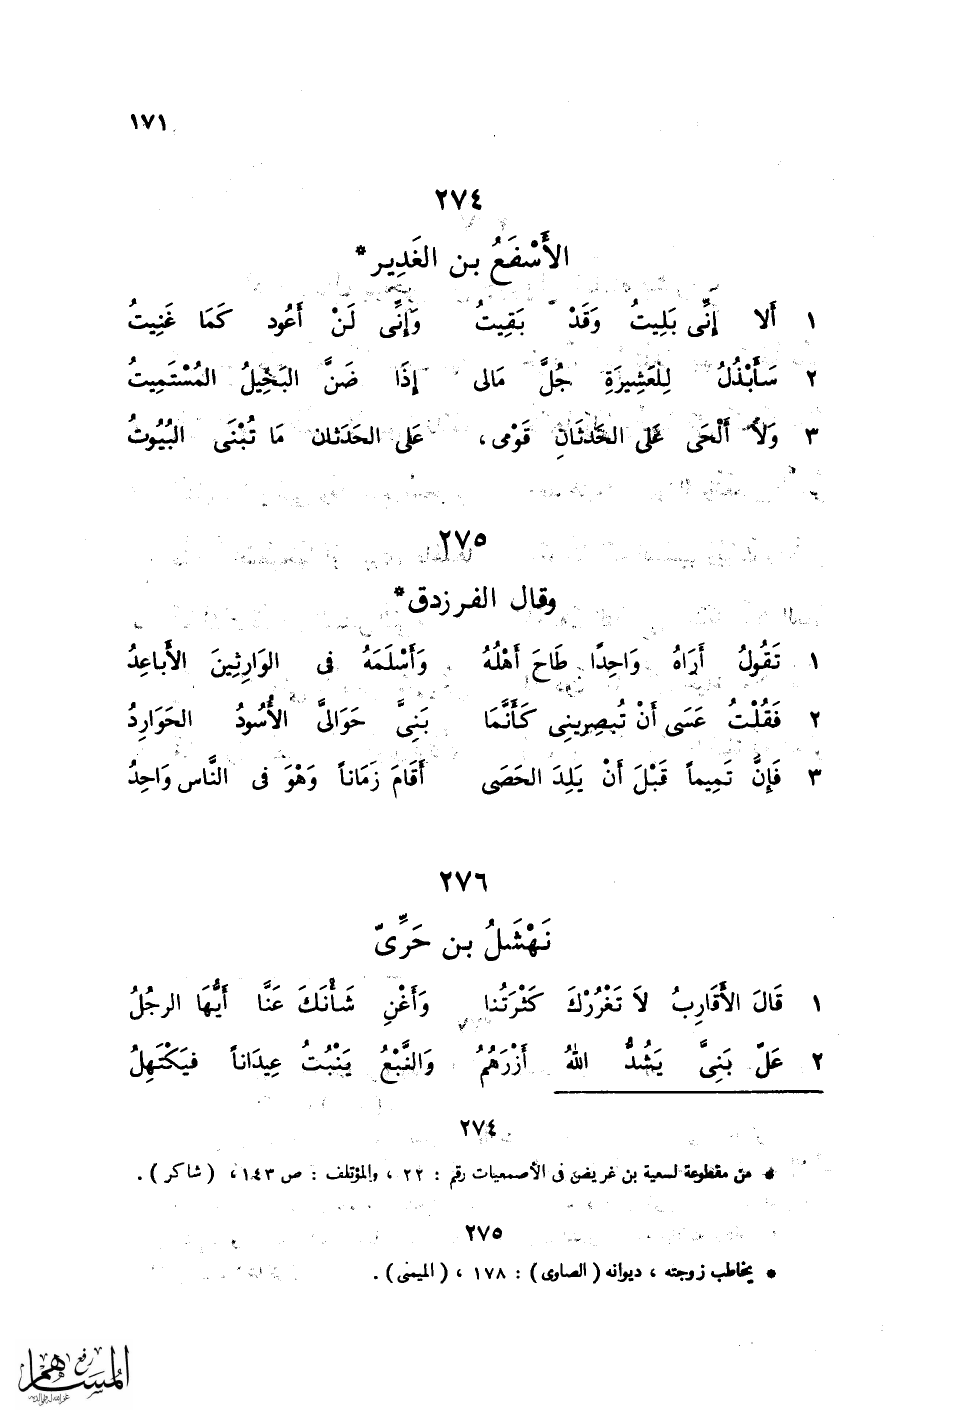 ١٧١
٢٧٤
الأَسْفَعُ بن الغَدِير *
١ أَلا إِنِّى بَلِيتُ وَقَدْ بَقِيتُ وَإِنِّى لَنْ أَعُود كَمَا غَنِيتُ
٢ سَأَبْذُلُ لِلْعَشِيرَةِ جُلَّ مَالى إِذَا ضَنَّ البَخِيلُ المُسْتَمِيتُ
٣ وَلاَ أَلْحَى عَلَى الحَدثَانِ قَوْمى ، عَلى الحَدَثان مَا تُبْنَى البُيُوتُ
٢٧٥
وقال الفرزدق *
١ تَقُولُ أَرَاهُ وَاحِدًا طَاحَ أَهْلُهُ وَأَسْلَمَهُ فى الوَارِثِينَ الأَباعِدُ
٢ فَقُلْتُ عَسَى أَنْ تُبصِرِينى كَأَنَّمَا بَنِىَّ حَوَالىَّ الأُسُودُ الحَوَارِدُ
٣ فَإِنَّ تَمِيماً قَبْلَ أَنْ يَلِدَ الحَصَى أَقَامَ زَمَاناً وَهْوَ فى النَّاس وَاحِدُ
٢٧٦
نَهْشَلُ بن حَرِّىّ
١ قَالَ الأَقَارِبُ لاَ تَغْرُرْكَ كَثْرَتُنا وَأَغْنِ شَأْنَكَ عَنَّا أَيُّهَا الرجُلُ
٢ عَلّ بَنِىَّ يَشُدُّ اللهُ أَزْرَهُمُ وَالنَّبْعُ يَنْبُتُ عِيدَاناً فيَكْتَهِلُ
٢٧٤
* من مقطوعة لسعية بن غريض فى الأصمعيات رقم : ٢٢ ، والمؤتلف : ص ١٤٣ ، ( شاكر ) .
٢٧٥
* يخاطب زوجته ، ديوانه ( الصاوى ) : ١٧٨ ، ( الميمنى ) .
رفع
المساهم